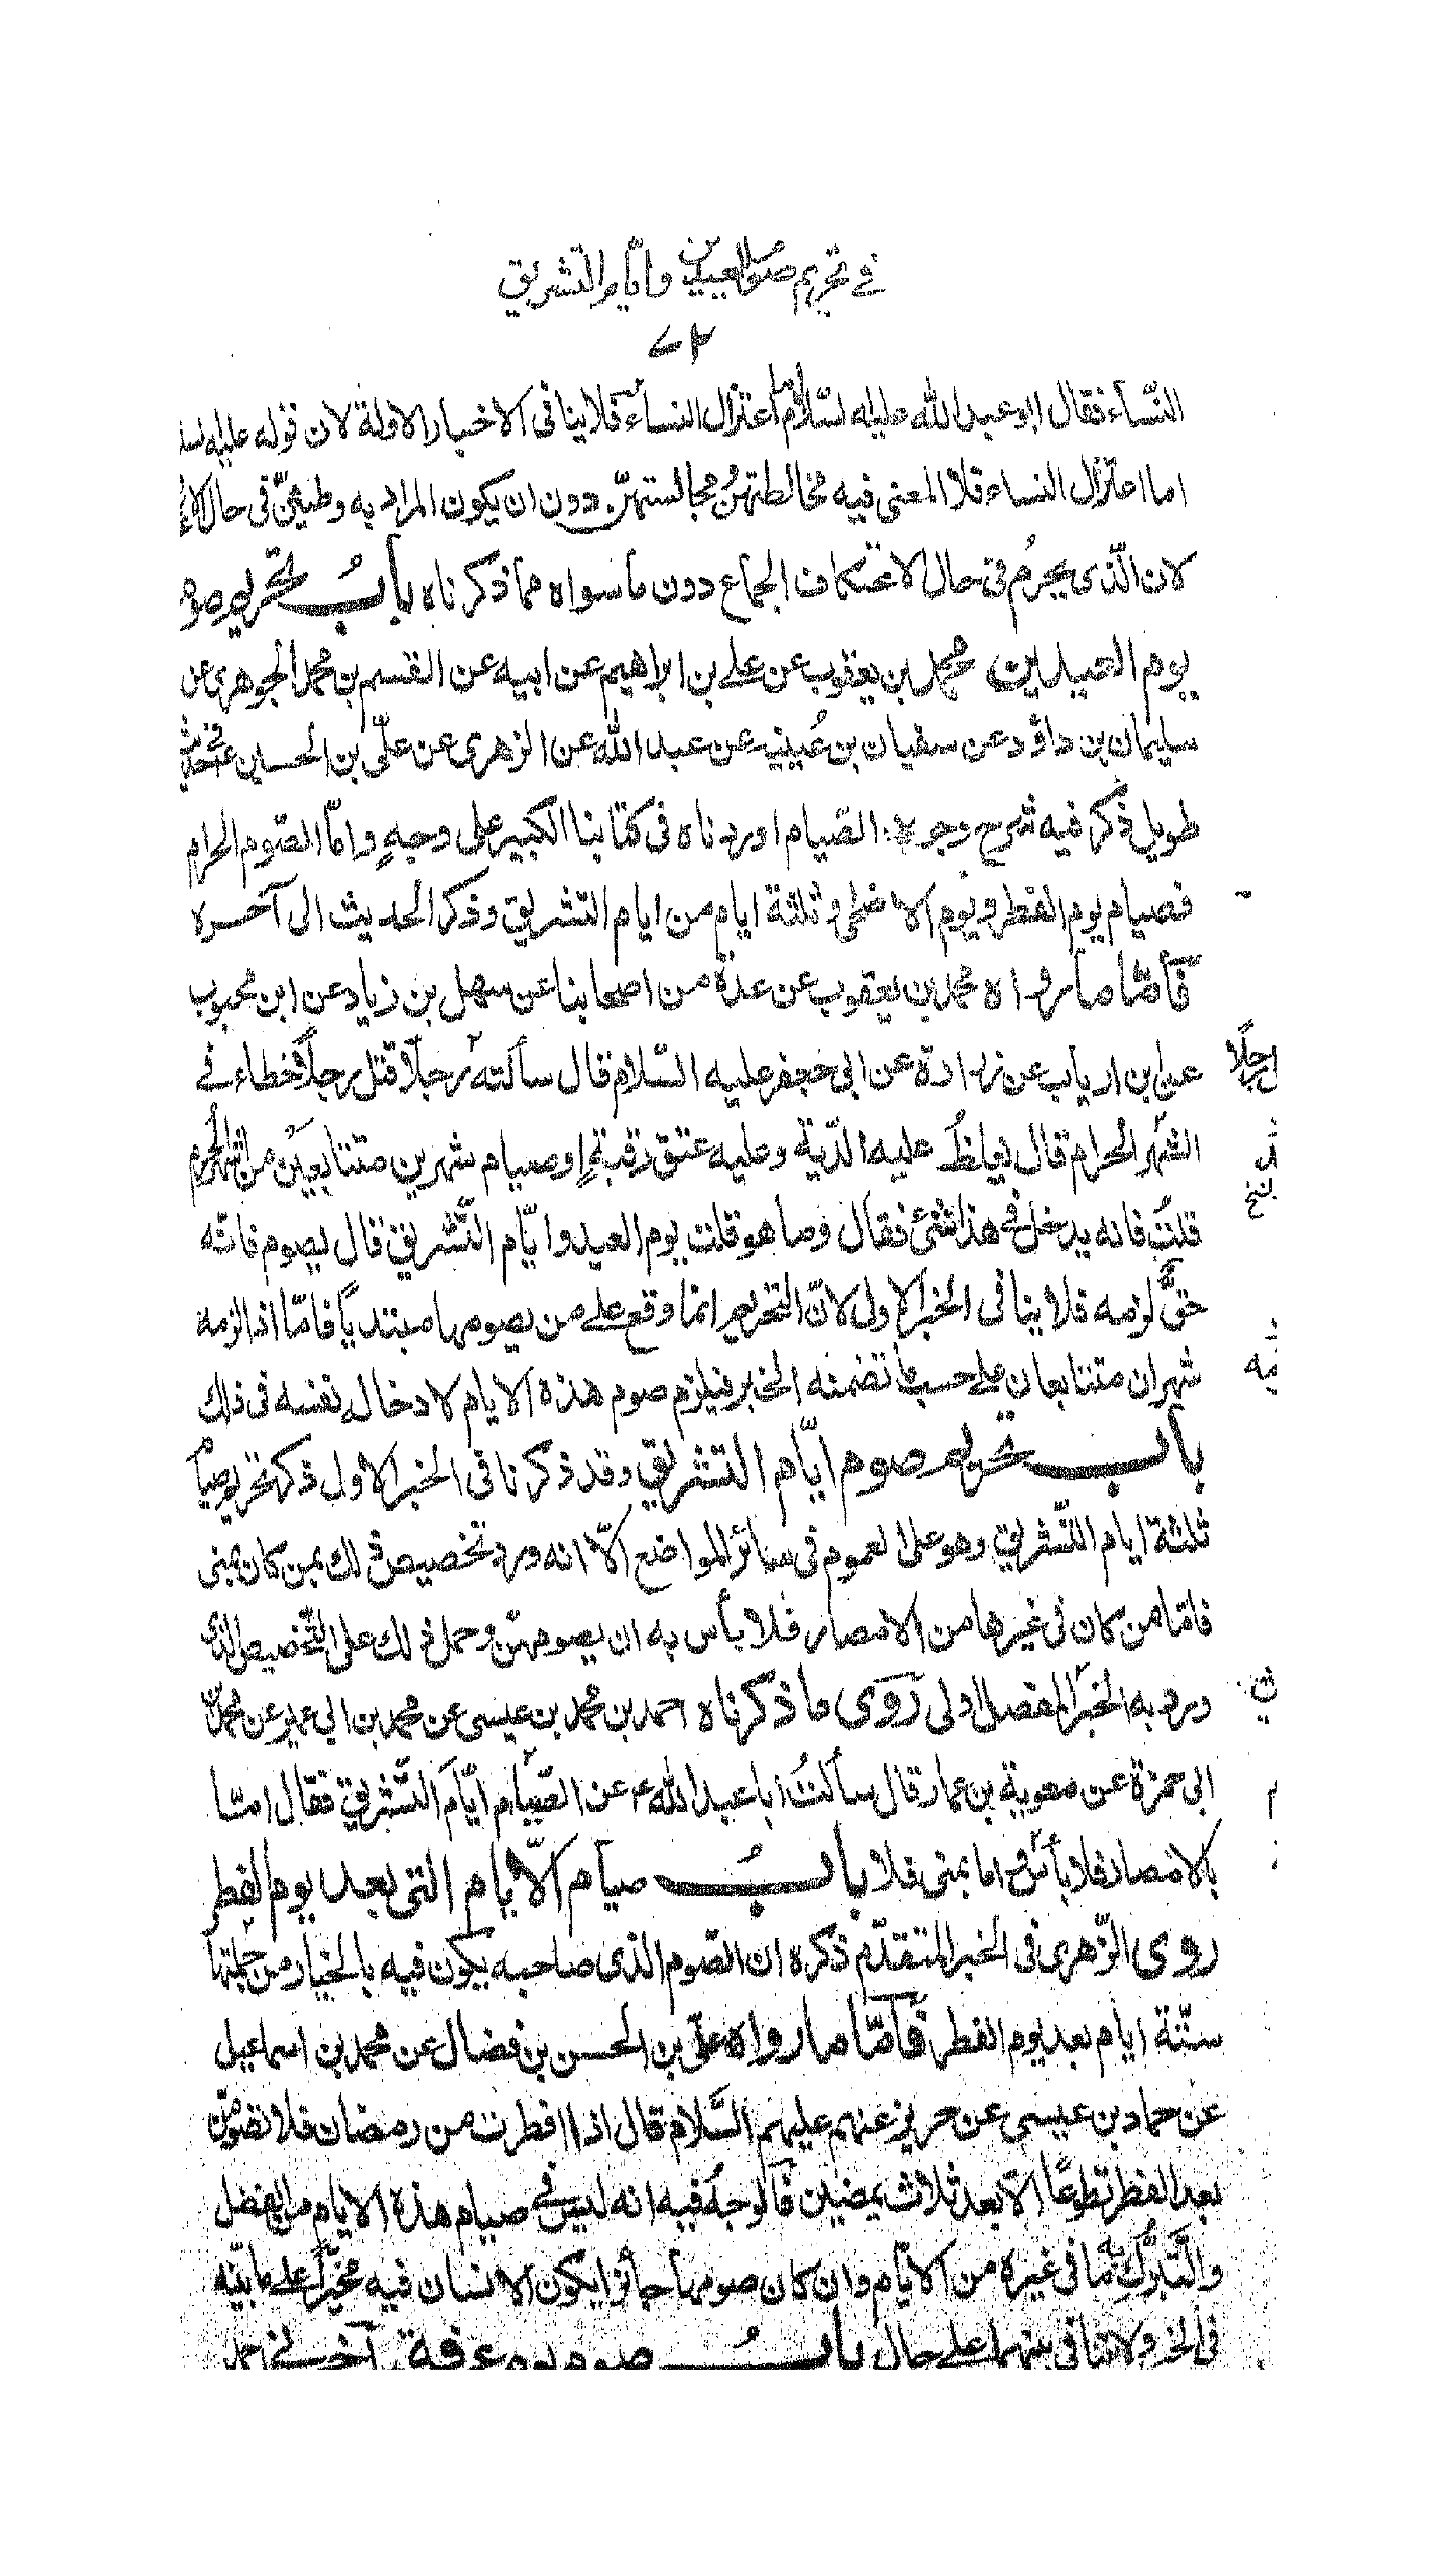 في تحريم صوم العيدين وايام التشريق
٧٢
النّساء فقال ابو عبد الله عليه السّلام اما اعتزال النساء فلا ينافى الاخبار الاولة لان قوله عليه
اما اعتزال النساء فلا المعنى فيه مخالطتهنّ مجالستهنّ دون ان يكون المراد به وطيهنّ فى حال
لان الّذى يحرُم فى حال الاعتكاف الجماع دون ما سواه مما ذكرناه بابُ تحريم صوم
يوم العيدين محمد بن يعقوب عن على بن ابراهيم عن ابيه عن القسم بن محمد الجوهرى عن
سليمان بن داؤد عن سفيان بن عُيينه عن عبد الله عن الزهرى عن علىّ بن الحسين
طويل ذكر فيه شرح وجوه الصّيام اوردناه فى كتابنا الكبير على وجهٍ وامّا الصّوم الحرام
فصيام يوم الفطر ويوم الاضحى وثلثة ايام من ايام التّشريق وذكر الحديث الى آخره
فأمّا ما رواه محمد بن يعقوب عن عدّة من اصحابنا عن سهل بن زياد عن ابن محبوب
على بن ارياب عن زرارة عن ابى جعفر عليه السّلام قال سألته رجلًا قتل رجلًا خطاء فے
رجلًا
الشّهر الحرام قال يغلظُ عليه الدّية وعليه عتق رقبةٍ او صيام شهرين متتابعين من اشهر الحُرم
قلتُ فانه يدخل فے هذا شئ فقال وما هو قلت يوم العيد وايّام التّشريق قال يصوم فانّه
حقٌّ لزمه فلا ينافى الخبر الاولى لانّ التحريم انما وقع على من يصومها مبتديًا فامّا اذا لزمه
شهران متتابعان على حسب ما تضمنه الخبر فيلزم صوم هذه الايام لا دخاله نفسه فى ذلك
باب تحريم صوم ايّام التشريق وقد ذكرنا فى الخبر الاول ذكر تحريم صيام
ثلثة ايام التّشريق وهو على العموم فى سائر المواضع الّا انه ورد تخصيص ذلك بمن كان بمنى
فامّا من كان فى غيرها من الامصار فلا بأس به ان يصومهنّ وحمل ذلك على التّخصيص الذى
ورد به الخبر المفصل اولى رَوَى ما ذكرناه احمد بن محمد بن عيسى عن محمد بن ابى عمير عن محمد بن
ابى حمزة عن معوية بن عمار قال سألتُ ابا عبد الله ع عن الصّيام ايّام التّشريق فقال امّا
بالامصار فلا بأس واما بمنى فلا بابُ صيام الّايام التى بعد يوم الفطر
روى الزّهرى فى الخبر المتقدّم ذكره ان الصّوم الذى صاحبه يكون فيه بالخيار من جملتها
ستّة ايام بعد يوم الفطر فأمّا ما رواه علىّ بن الحسن بن فضال عن محمد بن اسماعيل
عن حماد بن عيسى عن حريز عنهم عليهم السَّلام قال اذا افطرت من رمضان فلا تصومن
بعد الفطر تطوعًا الّا بعد ثلاث يمضين فالوجهُ فيه انه ليس فے صيام هذه الايام من الفضل
والتَّبرُّك به ما فى غيره من الايّام وان كان صومها جائزا يكون الانسان فيه مخيّرًا على ما بيّنه
فى الخبر ولا تنافى بينهما على حال بابُ صوم يوم عرفة